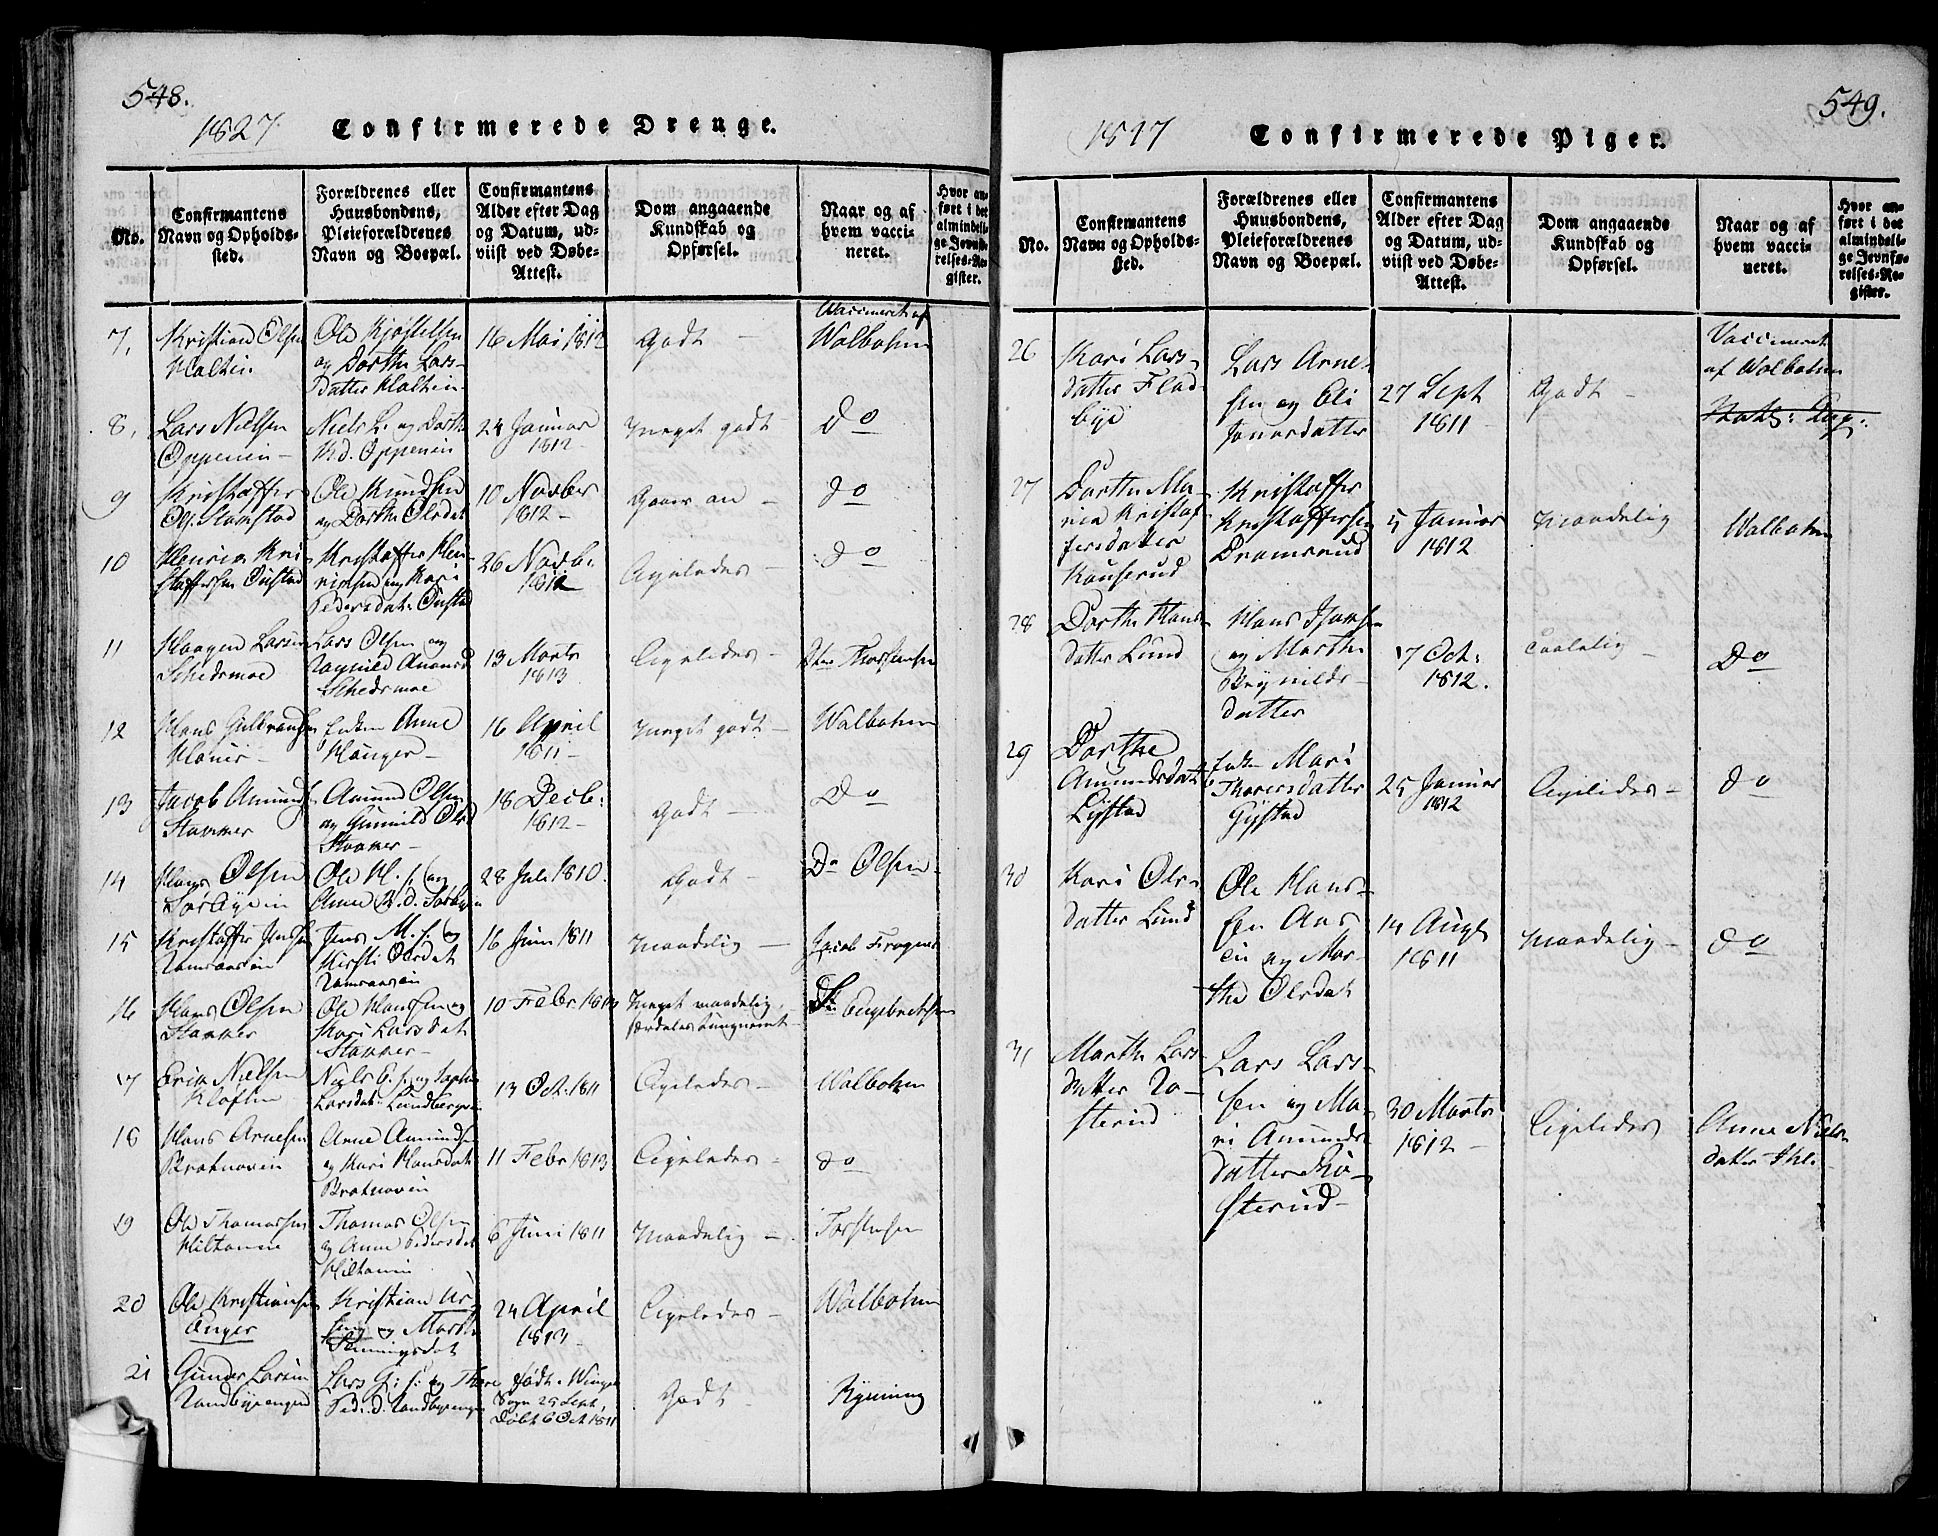 548.
1827 Confirmerede Drenge.
No.
Confirmantens
Navn og Opholds-
sted.
Forældrenes eller
Huusbondens,
Pleieforældrenes
Navn og Boepæl.
Confirmantens
Alder efter Dag
og Datum, ud-
viist ved Døbe-
Attest.
Dom angaaende
Kundskab og
Opførsel.
Naar og af
hvem vacci-
neret.
Hvor an-
ført i det
almindeli-
ge Jevnfø-
relses-Re-
gister.
7.
Kristian Olsen
Ole Kjøstelsen
og Dorthe Lars-
datter
16 Mai 1812
Godt -
Vaccineret af
Walbohm
8.
Lars Nielsen
Oppenin -
Niels L. og Dorthe
K.d. Oppenin
24 Januar
1812 -
meget godt -
Do
9
Kristoffer
Ols. Stamstad
Ole Knudsen
og Dorthe Olsdat
10 Novber
1812 -
Gaaer an -
do
10
Henrik Kri
stoffersen Onstad
Kristoffer Hen-
riksen og Kari
Pedersdat: Onstad
26 Novb:
1812
Ligeledes -
do
11
Haagen Larsen
Schedsmoe
Lars Olsen og
Schedsmoe
13 Marts
1813
Ligeledes -
Thorstensen
12
Hans Gulbrandsen
Enken Anne
Hauger -
16 April
1811 -
meget godt -
Walbohm
13
Jacob Amundsen
Stamner
Amund Olsen
og Gunnild Olsd
Stamner -
18 Decb:
1812 -
Godt -
Do
14
Hans Olsen
Ole H. s. og
Anne
28 Juli 1810.
Godt -
Do Olsen
15
Kristoffer Jensen
Jens M. s. og
Kirsti Olsdat
16 Juni 1811
maadelig -
Jacob Frogner
16
Hans Olsen
Stamner
Ole Hansen og
Kari Larsdat
Stamner -
10 Febr
meget maadelig,
særdeles tungnemt -
Engebretsen
17
Erik Nielsen
Kløften
Niels E. s. og Sophie
Larsdat: Lundbergen
13 Oct. 1811
Ligeledes -
Walbohm
18
Hans Arnesen
Arne Amundsen
og Kari Hansdat
11 Febr 1813
Ligeledes -
do
19
Ole Thomassen
Thomas Olsen
og Anne Pedersdat
6 Juni 1811
Maadelig -
Torstensen
20
Ole Kristiansen
Enger
Kristian
og Marthe
Henningsdat
24 April
1813 -
Ligeledes -
Walbohm
21
Gunder Larsen
Lars G: s: og Thore
Ped: d.
født i Winger
Sogn 29 Sept,
døbt 6 Oct 1811
Godt -
Kynning
549.
1827 Confirmerede Piger.
No.
Confirmantens
Navn og Opholds-
sted.
Forældrenes eller
Huusbondens,
Pleieforældrenes
Navn og Boepæl.
Confirmantens
Alder efter Dag
og Datum, ud-
viist ved Døbe-
Attest.
Dom angaaende
Kundskab og
Opførsel.
Naar og af
hvem vacci-
neret.
Hvor an-
ført i det
almindeli-
ge Jevnfø-
relses-Re-
gister.
26
Kari Lars-
datter Flad-
bye
Lars Arne-
sen og Eli
Jonasdatter
27 Sept
1811
Godt -
Vaccineret
af Walbohm
27
Dorthe Ma-
rie Kristof-
fersdatter
Kauserud
Kristoffer
Kristoffersen
Dramsrud
5 Januar
1812
Maadelig
Walbohm
28
Dorthe Hans-
datter Lund
Hans
og Marthe
Brynilds-
datter
7 Oct:
1812.
Taalelig -
Do
29
Dorthe
Amundsdatt
Enken Mari
Thoresdatter
Gystad
25 Januar
1812
Ligeledes -
do
30
Kari Ols-
datter Lund
Ole Han-
sen Aas
og Mar-
the Olsdat
14 Augt
1811
Maadelig -
do
31
Marthe Lars-
datter Rø-
sterud
Lars Lars-
sen og Ma-
ri Amunds-
datter Rø-
sterud -
30 Marts
1812 -
Ligeledes
Anne Niels-
datter